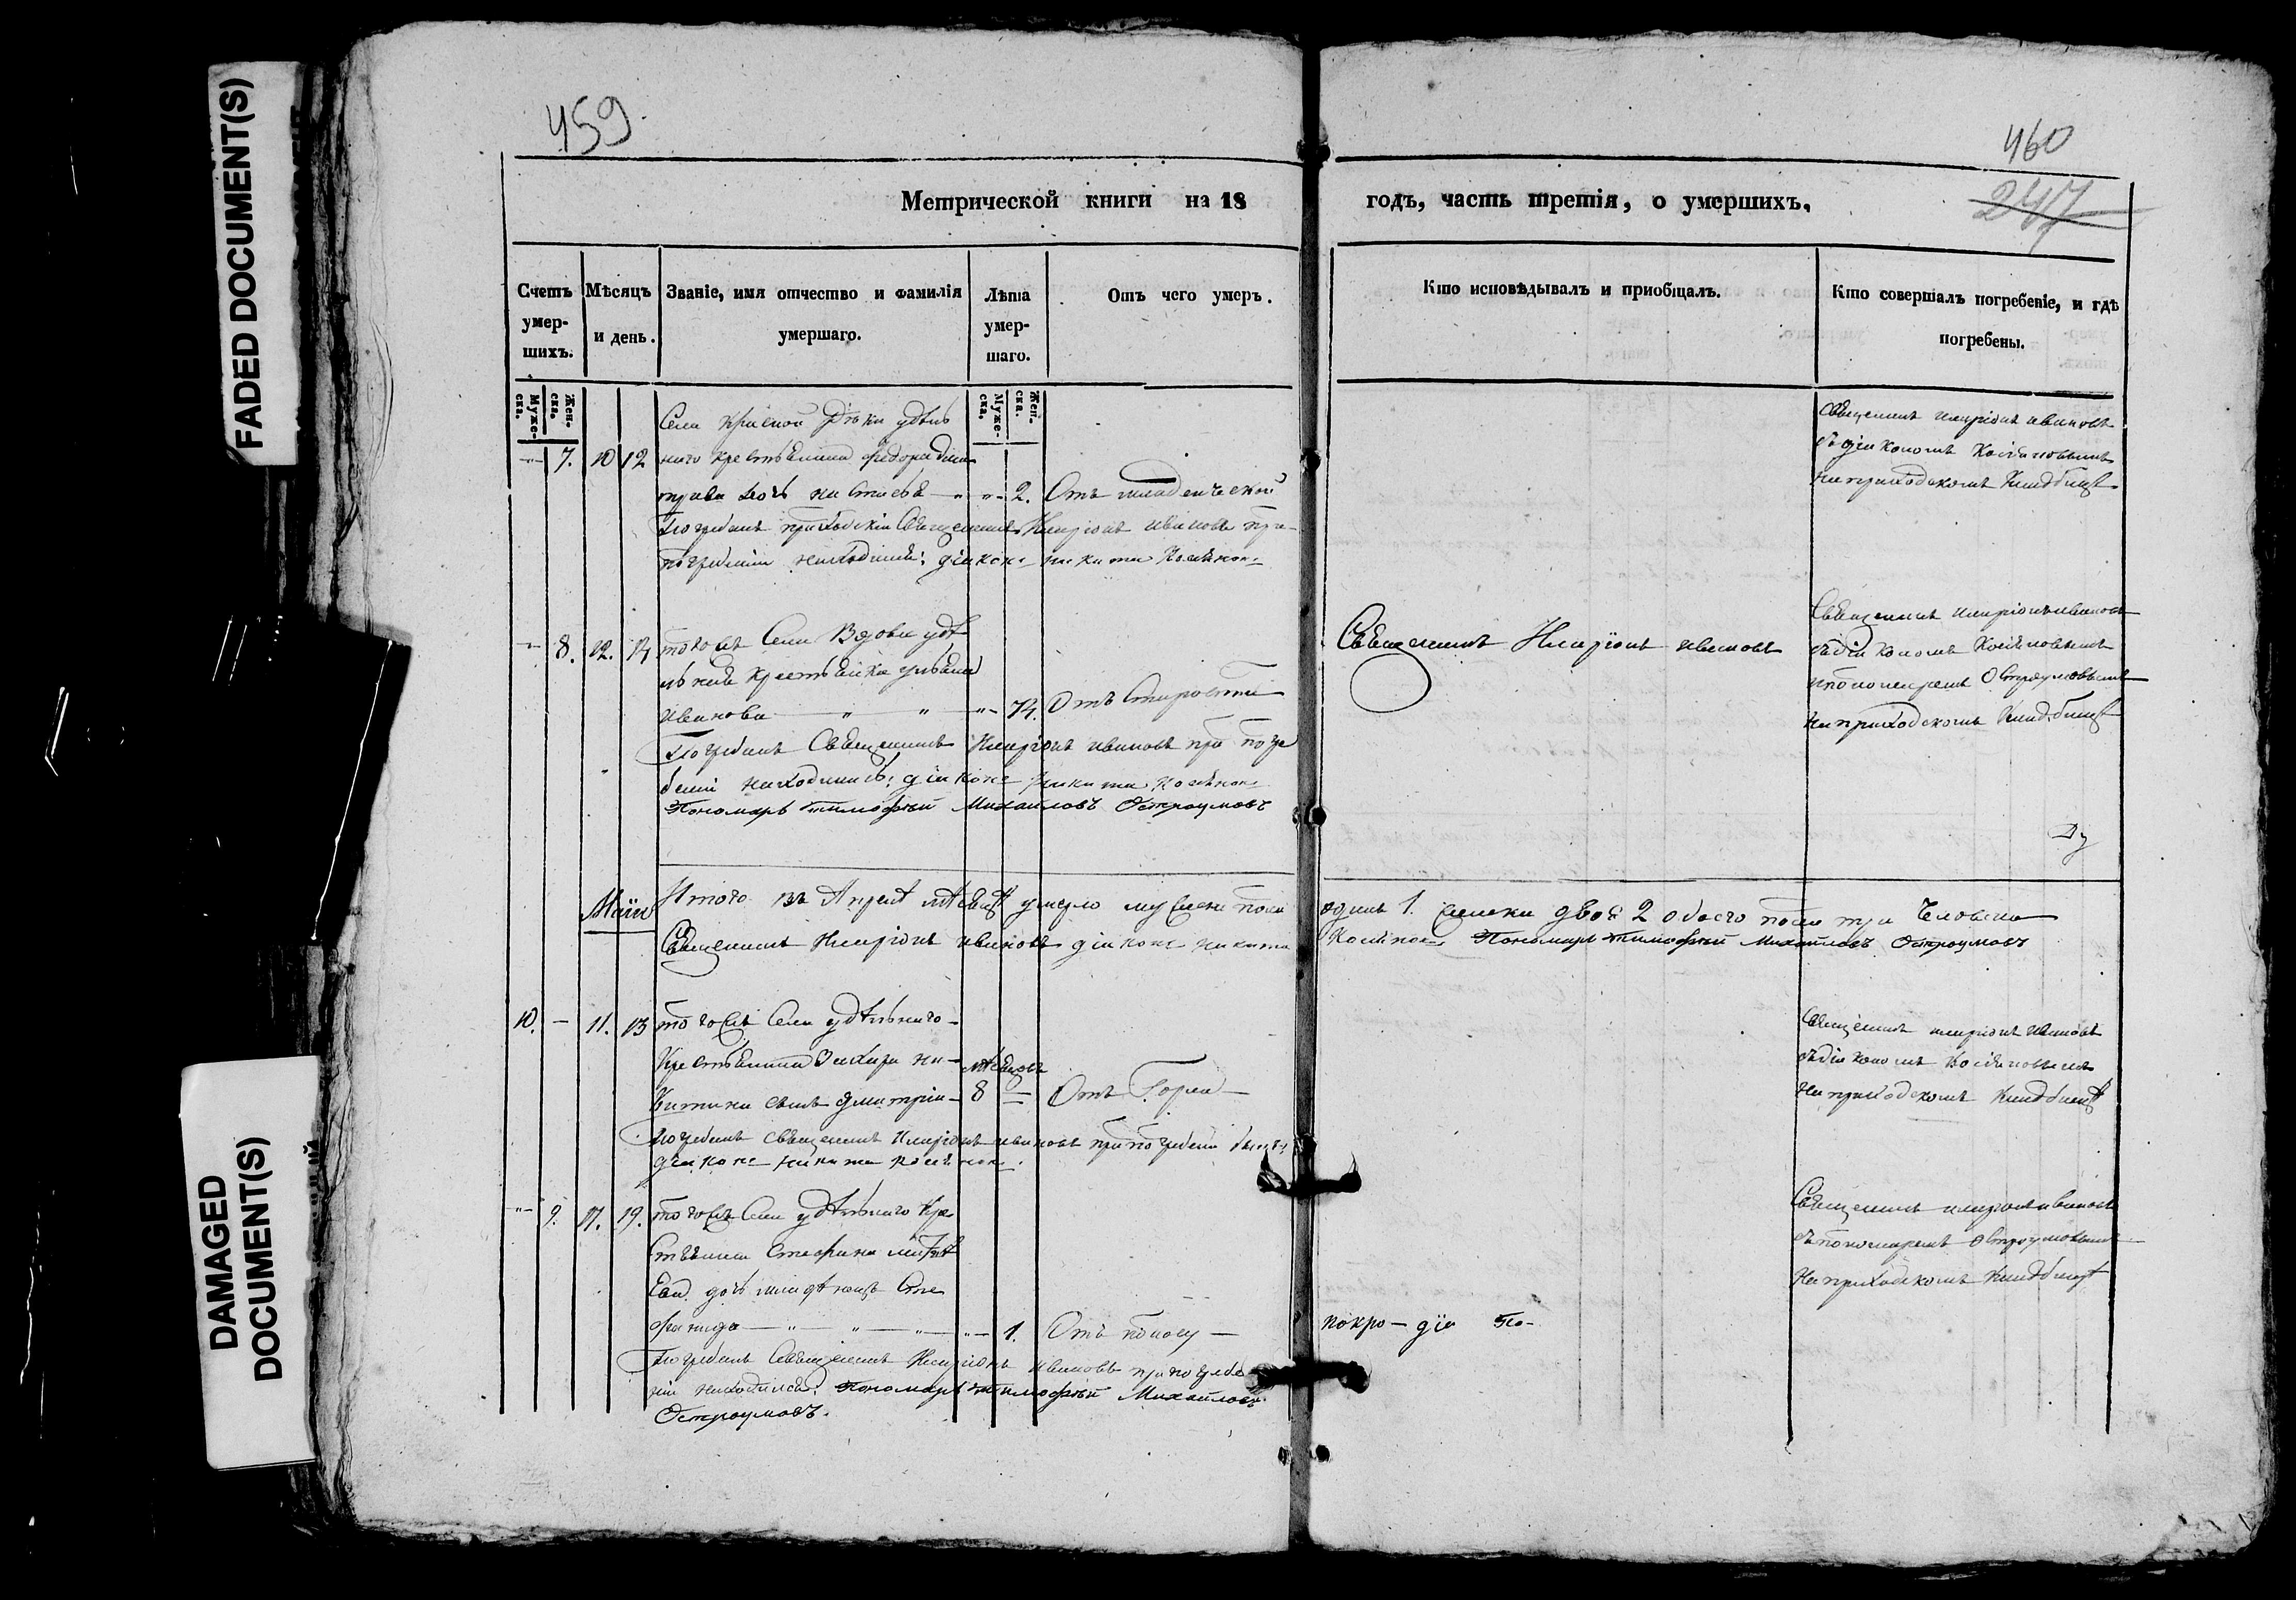 FADED DOCUMENT(S)
DAMAGED DOCUMENT(S)
459
460
247
Метрической книги на 18 годъ, часть третія, о умершихъ.
Счетъ умер-шихъ.
Мѣсяцъ и день.
Званіе, имя отчество и фамилія умершаго.
Лѣта умер-шаго.
Отъ чего умеръ.
Кто исповѣдывалъ и пріобщалъ.
Кто совершалъ погребеніе, и гдѣ погребены.
Муже-ска.
Жен-ска.
Муже-ска.
Жен-ска.
Села Красной Рѣки удѣль
7. 10 12 наго крестьянина Федора Дми
тріева дочь 2. Отъ младенческой
Погребалъ приходскій Священникъ Иларіонъ Ивановъ при
погребеніи находился: діаконъ Никита
Священникъ Иларіонъ Ивановъ
съ діакономъ
на приходскомъ кладбищѣ
8. 12. 14 тогожъ Села Вдова удѣ
льная крестьянка Ульяна
Иванова 74. Отъ Старости
Погребалъ Священникъ Иларіонъ Ивановъ при погре
беніи находились: діаконъ Никита
Пономарь Тимофѣй Михайловъ Остроумовъ
Священникъ Иларіонъ Ивановъ
Священникъ Иларіонъ Ивановъ
съ діакономъ
и пономаремъ Остроумовымъ
на приходскомъ кладбищѣ
Итого въ Апрелѣ мѣсяцѣ умерло мужеска пола одинъ 1. женска двоя 2 обоего пола три Человека
Маія
Священникъ Иларіонъ Ивановъ діаконъ Никита Пономарь Тимофѣй Михайловъ Остроумовъ
10. – 11. 13 тогожъ Села удѣльнаго
Крестьянина Захара Ни-
китина сынъ Дмитрій мѣсяцовъ 8 Отъ Горла
Погребалъ священникъ Иларіонъ Ивановъ при погребеніи былъ
діаконъ Никита
Священникъ Иларіонъ Ивановъ
съ діакономъ
на приходскомъ кладбищѣ
9. 17. 19. тогожъ Села удѣльнаго Кре
стьянина Стефана
дочь Сте
фанида 1. Отъ поносу
Погребалъ Священникъ Иларіонъ Ивановъ при погребе
ніи находился: Пономарь Тимофѣй Михайловъ
Остроумовъ.
покро – діа по-
Священникъ Иларіонъ Ивановъ
съ пономаремъ Остроумовымъ
на приходскомъ кладбищѣ